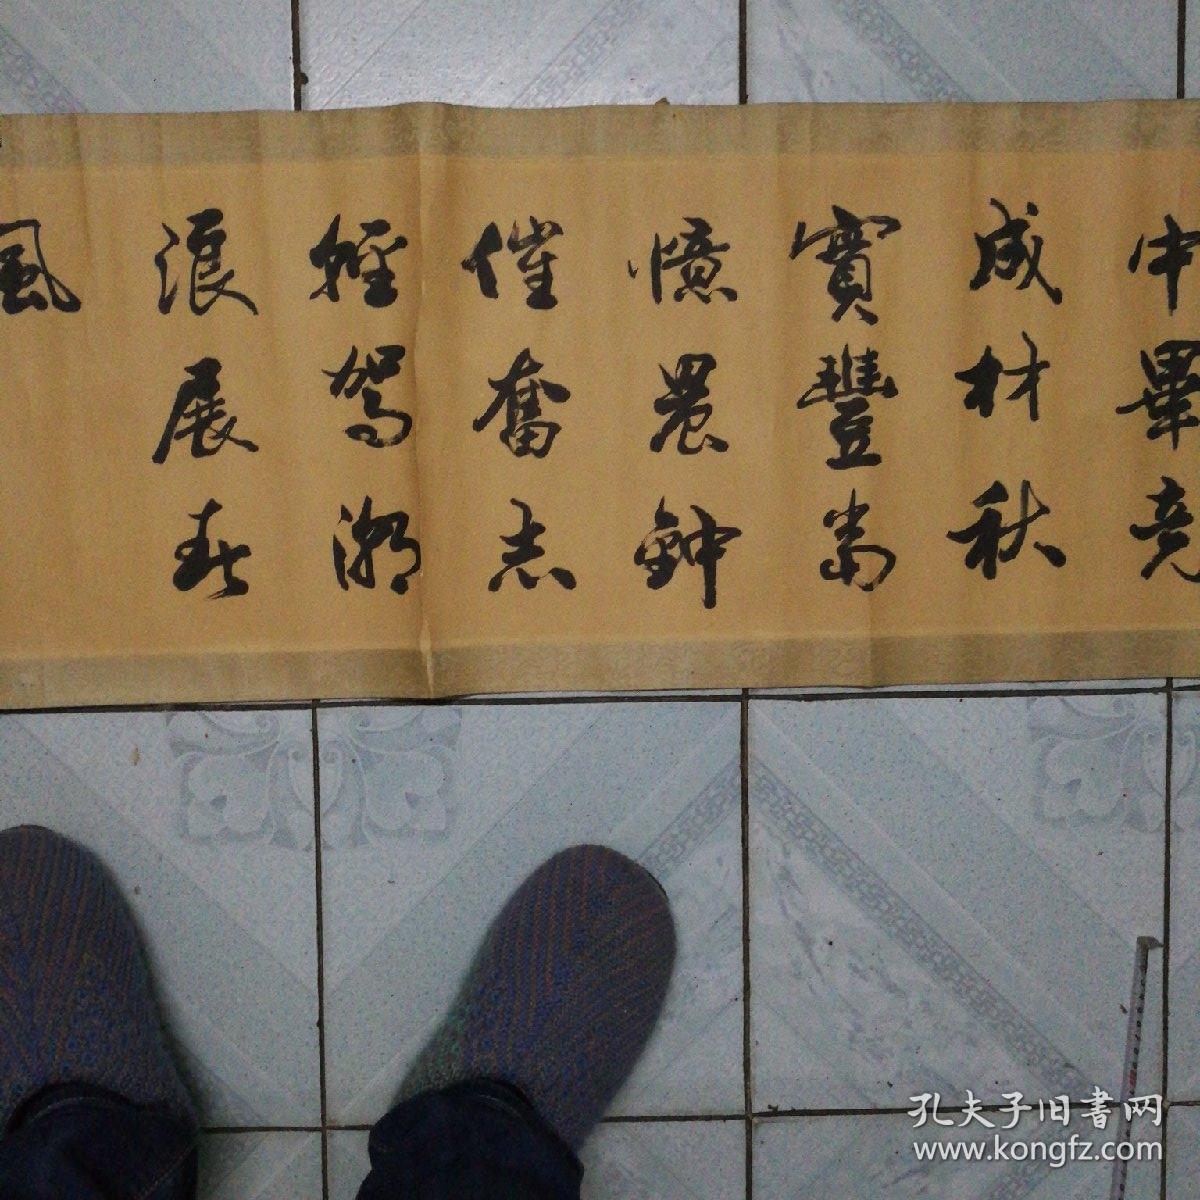 中畢竟
成材秋
實豐當
憶晨鐘
催奮志
輕駕潮
浪展春
風
孔夫子旧书网
www.kongfz.com